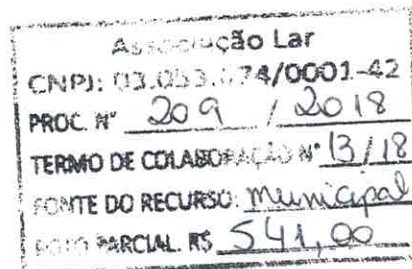 Associação Lar
CNPJ: 03.053.674/0001-42
PROC. Nº 209 / 2018
TERMO DE COLABORAÇÃO Nº 13/18
FONTE DO RECURSO: municipal
PARCIAL. R$ 541,00